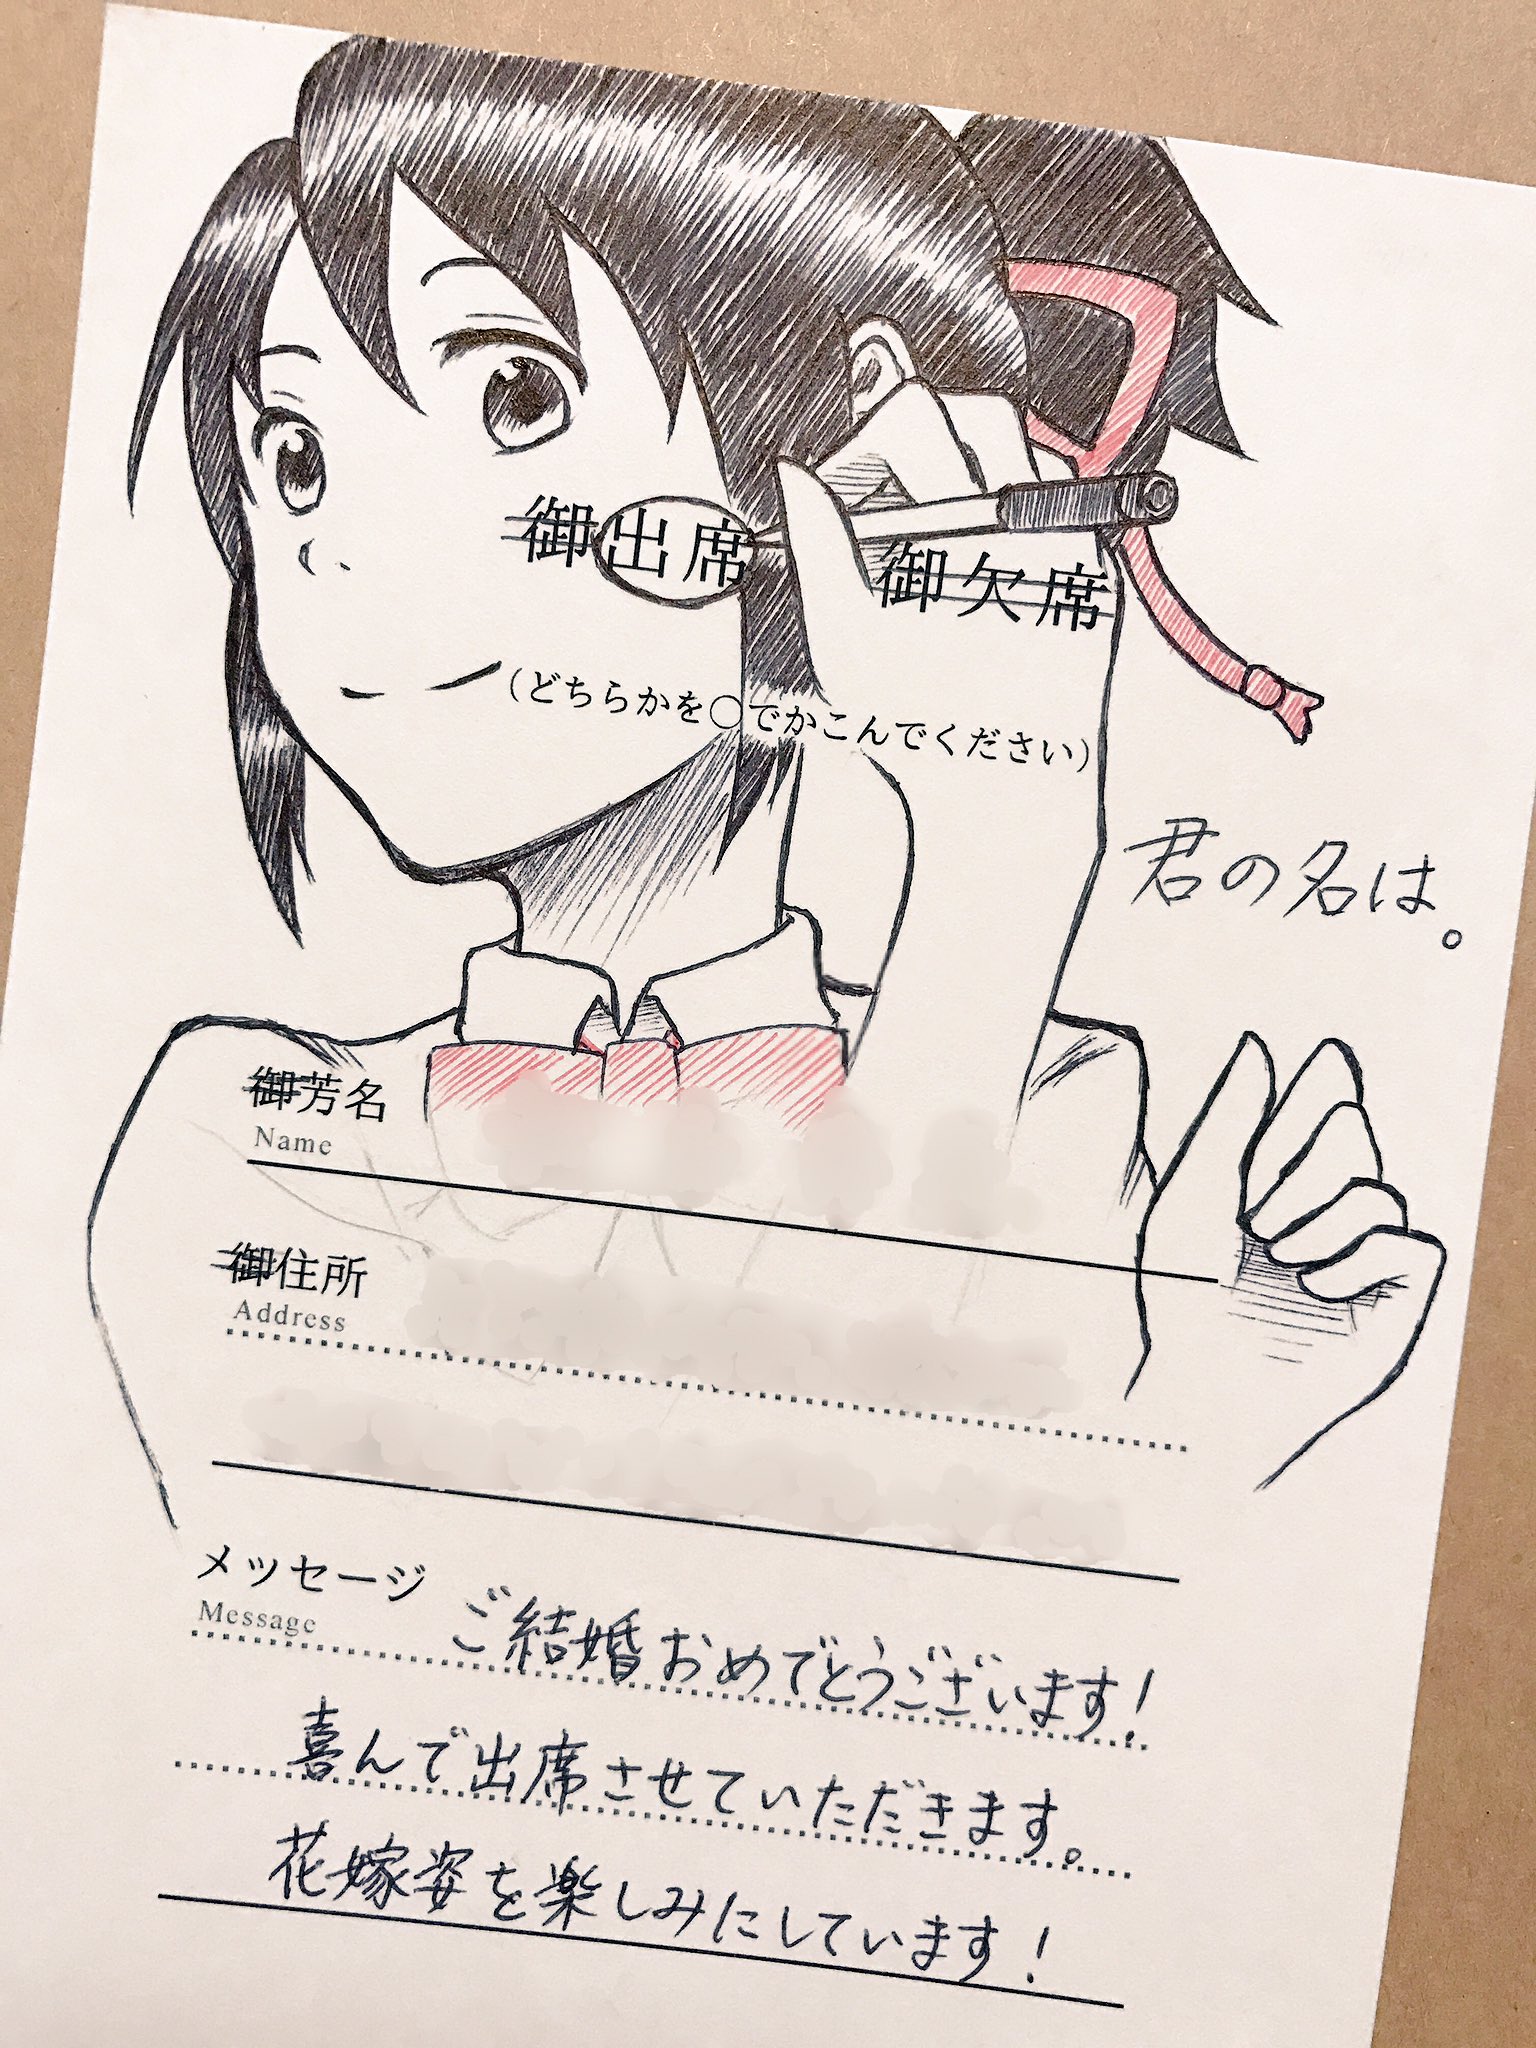 御出席
御欠席
(どちらかを○でかこんでください)
君の名は。
御芳名
Name
御住所
Address
メッセージ
Message
ご結婚おめでとうございます!
喜んで出席させていただきます。
花嫁姿を楽しみにしています!